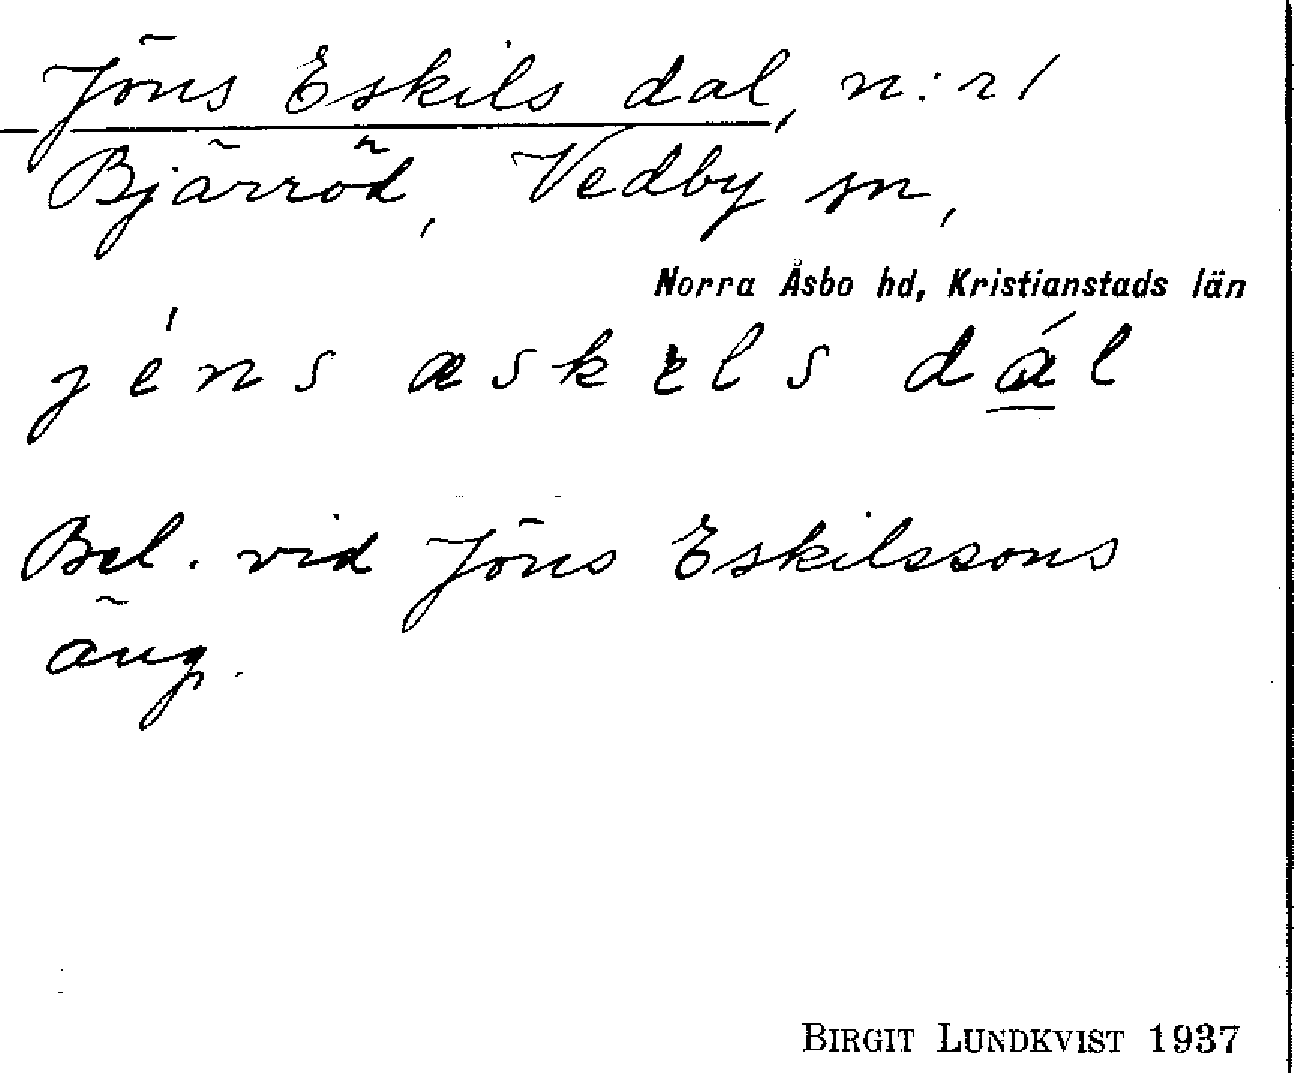 Jöns Eskils dal, n:r 1
Bjärröd, Vedby sn,
Norra Åsbo hd, Kristianstads län
jéns æskɪls dál
Bel. vid Jöns Eskilssons
äng.
BIRGIT LUNDKVIST 1937